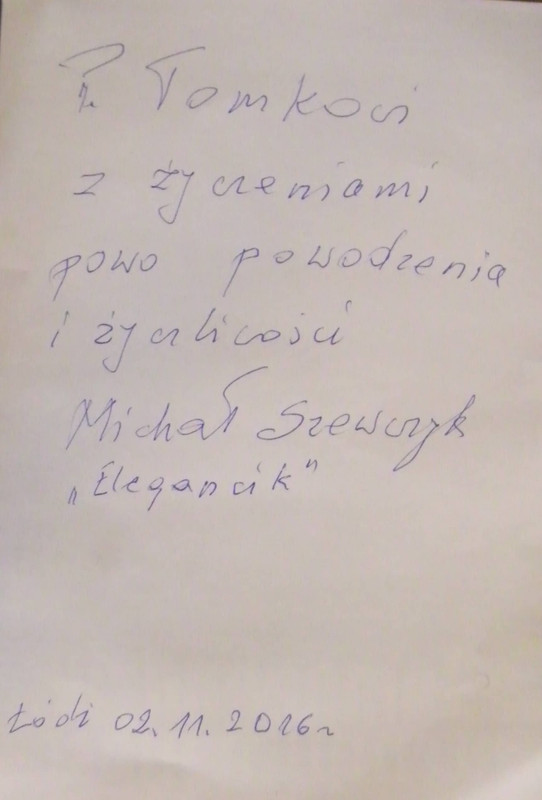 P. Tomkowi
z życzeniami
powo powodzenia
i życzliwości
Michał Szewczyk
„Elegancik"
Łódź 02.11.2016r